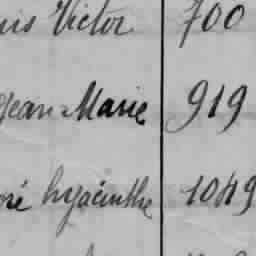 Victor 700
Jean Marie 919
hyacinthe 1049